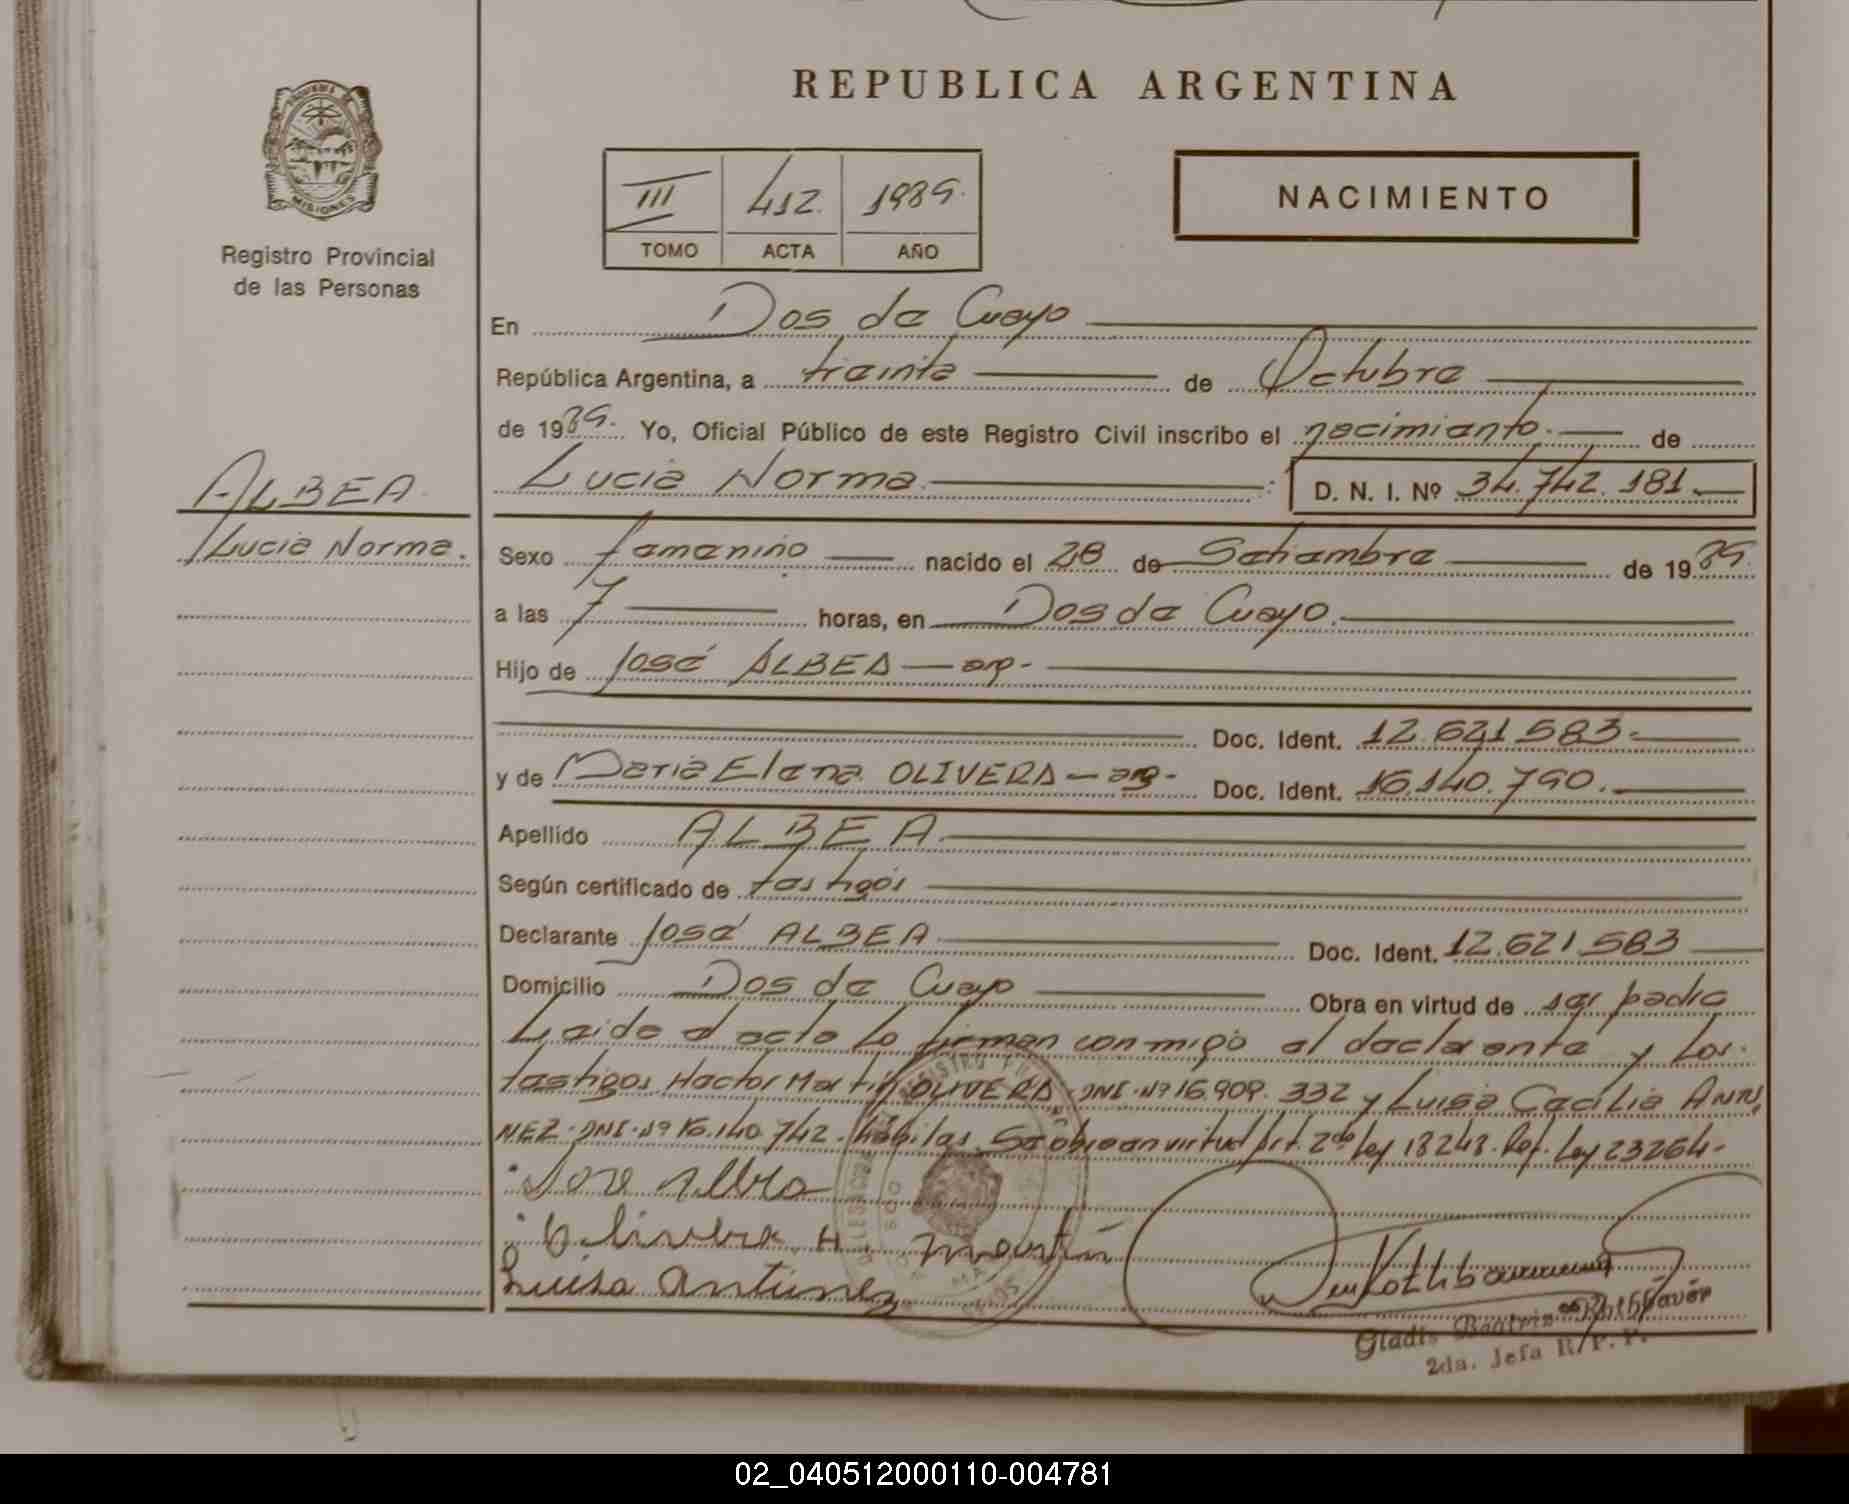 REPUBLICA ARGENTINA
PROVINCIA DE
MISIONES
Registro Provincial
de las Personas
III 412. 1989.
TOMO ACTA AÑO
NACIMIENTO
En Dos de Mayo
República Argentina, a treinta de Octubre
de 1989. Yo, Oficial Público de este Registro Civil inscribo el nacimiento. de
ALBEA
Lucia Norma.
Lucia Norma : D. N. I. Nº 34.742.181.
Sexo femenino nacido el 28 de Setiembre de 1989.
a las 7 horas, en Dos de Mayo.
Hijo de José ALBEA - arg-
Doc. Ident. 12.621.583.
y de Maria Elena OLIVERA - arg- Doc. Ident. 16.140.790.
Apellido ALBEA
Según certificado de testigos
Declarante José ALBEA Doc. Ident. 12.621.583
Domicilio Dos de Mayo Obra en virtud de ser padre
Leido el acta lo firman conmigo el declarante y los
testigos Hector Martin OLIVERA DNI-Nº 16.909.332 y Luisa Cecilia ANTU
NEZ-DNI-Nº 16.140.742. habiles. Se obro en virtud Art. 2do Ley 18248. Ref. Ley 23264-
Jose Albea
Olivera H. Martín
Luisa Antunez
Gladis Beatriz
2da. Jefa R.P.P.
02_040512000110-004781